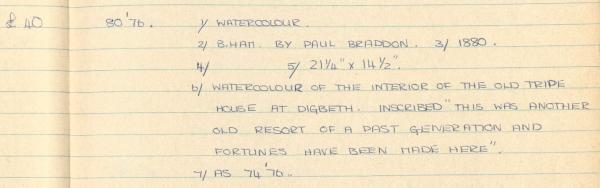 £ 40 80'76. 1/ WATERCOLOUR.
2/ B.HAM. BY PAUL BRADDON. 3/ 1880.
4/ 5/ 21¼" x 14½".
6/ WATERCOLOUR OF THE INTERIOR OF THE OLD TRIPE
HOUSE AT DIGBETH. INSCRIBED "THIS WAS ANOTHER
OLD RESORT OF A PAST GENERATION AND
FORTUNES HAVE BEEN MADE HERE".
7/ AS 74'76.